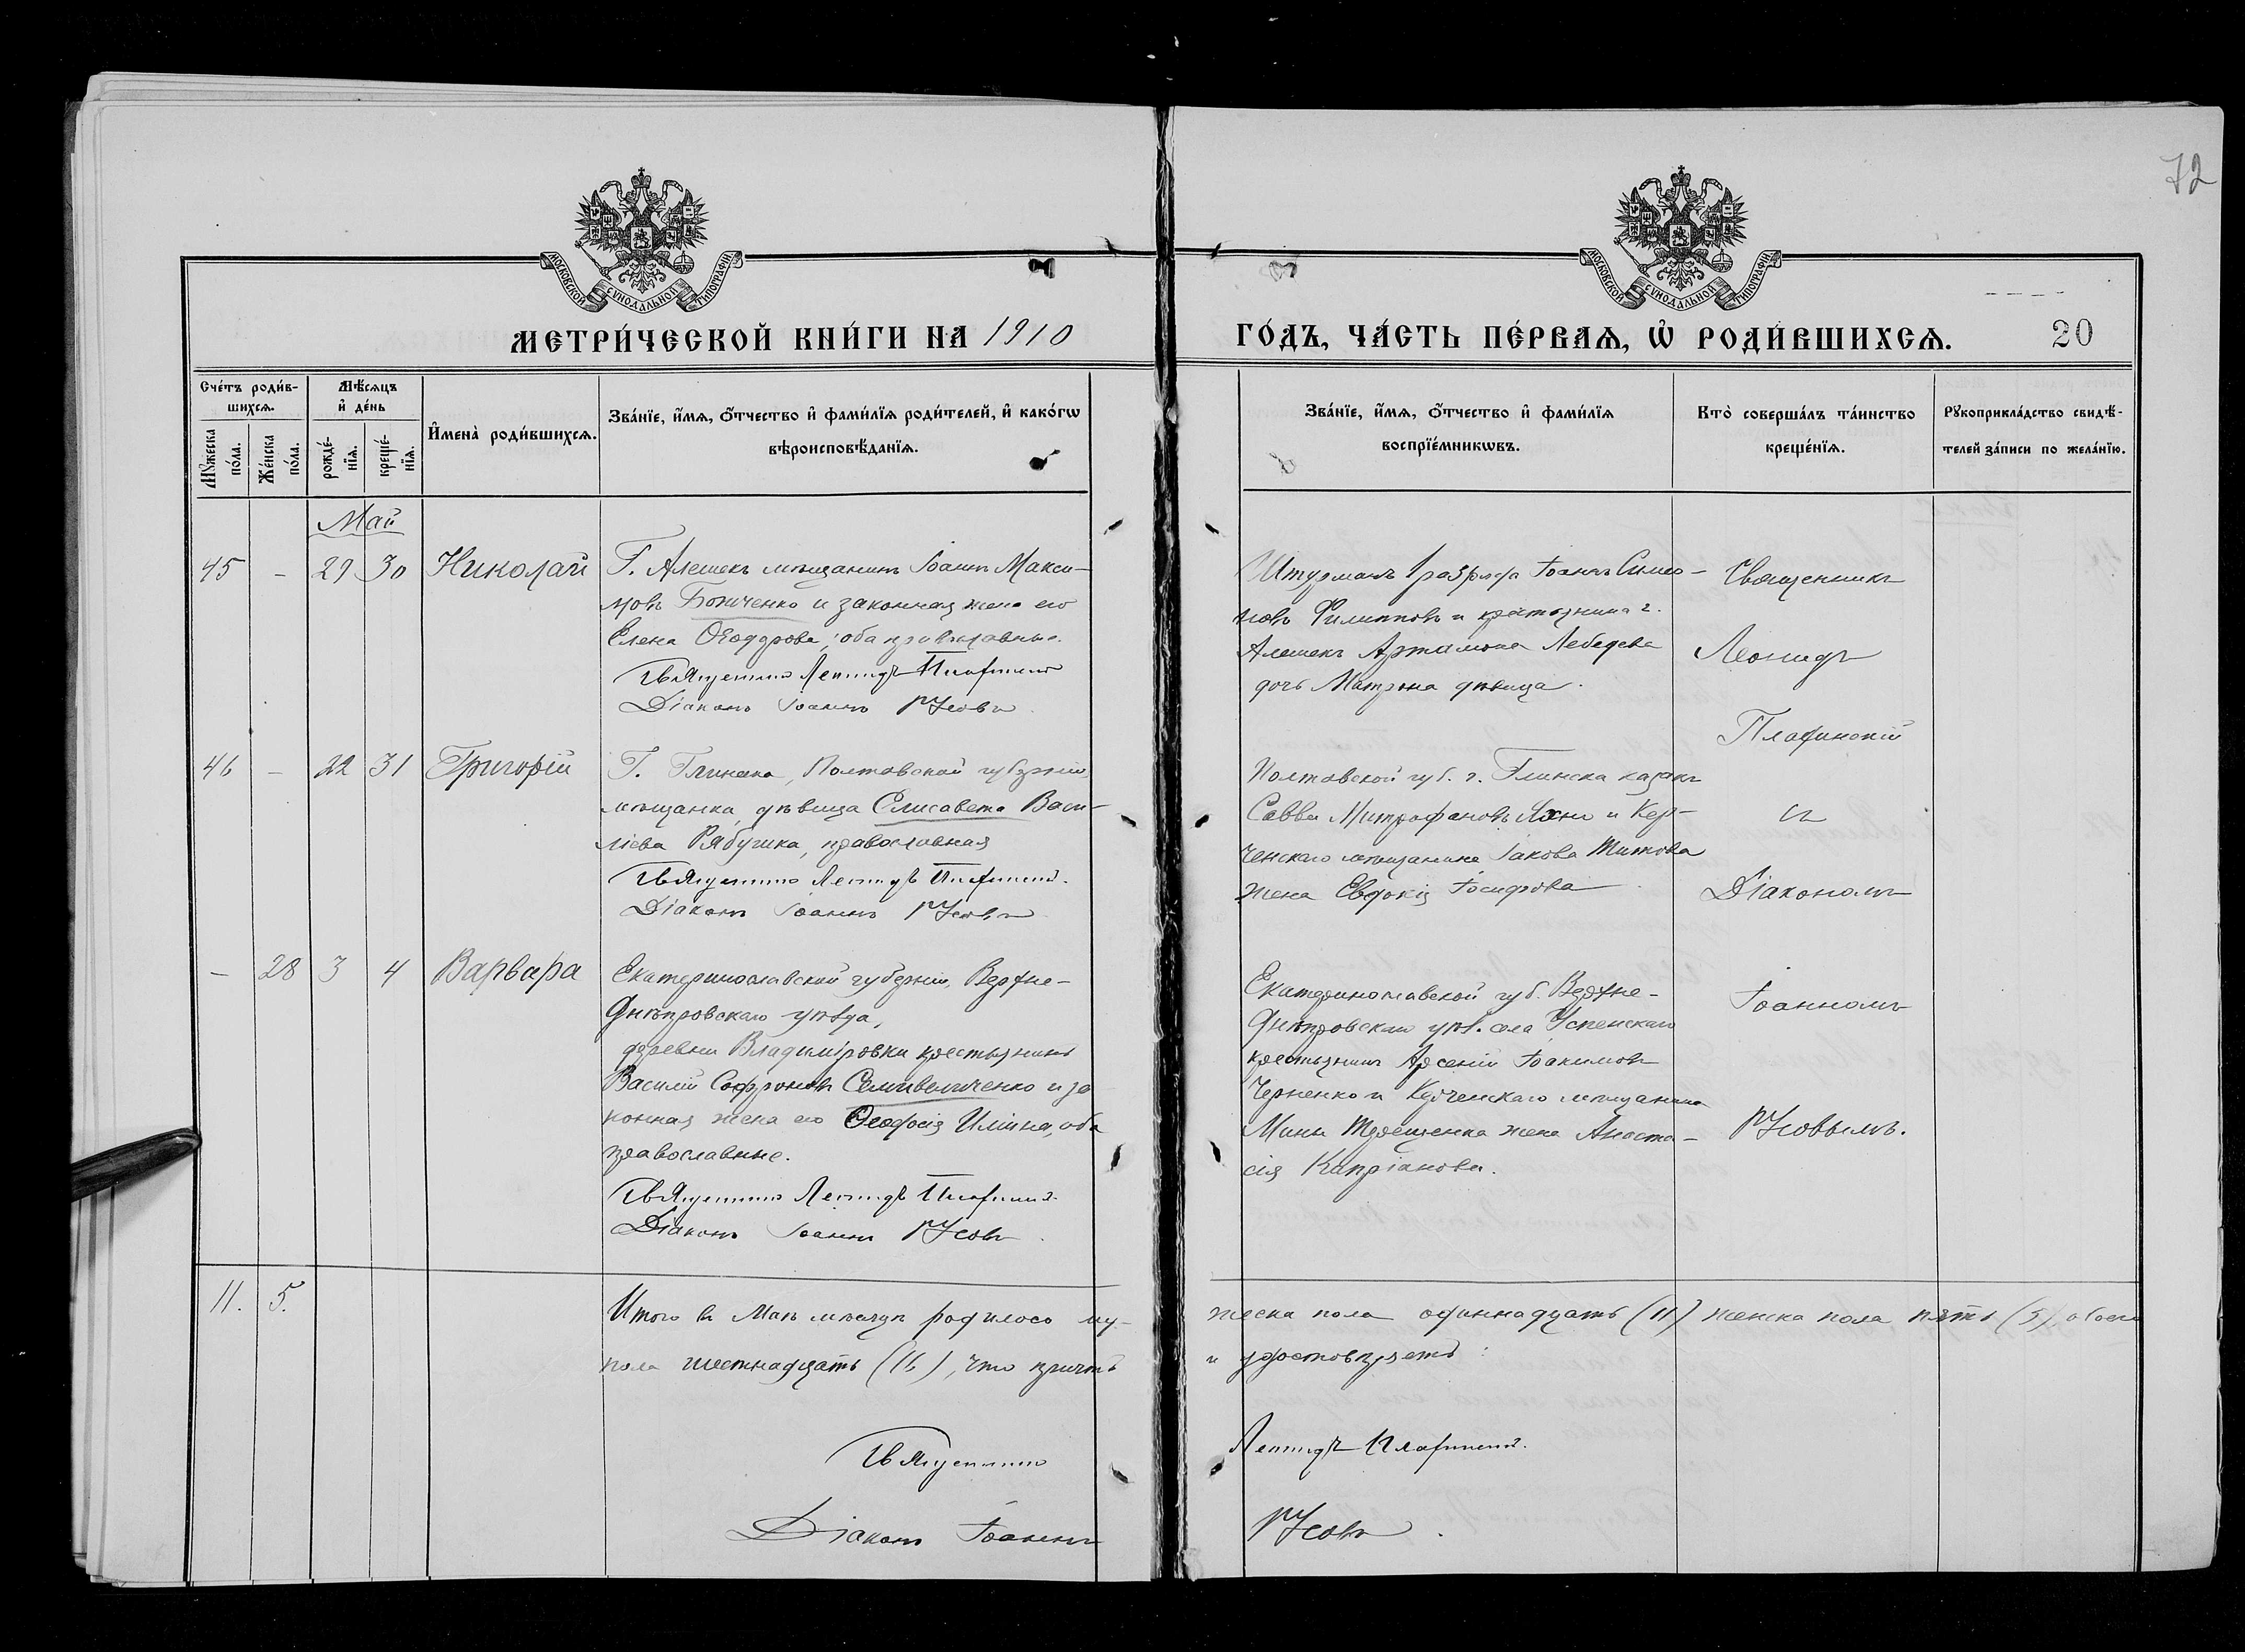 72
МОСКОВСКОЙ СѴНОДАЛЬНОЙ ТИПОГРАФІИ
МОСКОВСКОЙ СѴНОДАЛЬНОЙ ТИПОГРАФІИ
МЕТРИ́ЧЕСКОЙ КНИ́ГИ НА 1910
ГО́ДЪ, ЧА́СТЬ ПЕ́РВАѦ, Ѡ҆ РОДИ́ВШИХСѦ. 20
Сче́тъ роди́в-
шихсѧ.
Мꙋ́жеска по́ла.
Же́нска по́ла.
Мѣ́сѧцъ
и҆ де́нь
рожде́-
нїѧ.
креще́-
нїѧ.
И҆мена̀ роди́вшихсѧ.
Зва́нїе, и҆́мѧ, ѻ҆́тчество и҆ фами́лїѧ роди́телей, и҆ како́гѡ
вѣроисповѣ́данїѧ.
Зва́нїе, и҆́мѧ, ѻ҆́тчество и҆ фами́лїѧ
воспрїе́мникѡвъ.
Кто̀ соверша́лъ та́инство
креще́нїѧ.
Рꙋкоприкла́дство свидѣ́-
телей за́писи по жела́нїю.
Май
45 - 29 30 Николай
Г. Алешекъ мѣщанинъ Іоаннъ Макси-
мовъ и законная жена его
Елена Ѳеодорова, оба православные.
Священникъ Леонидъ Плафинскій
Діаконъ Іоаннъ Русовъ
Штурманъ 1 разряда Іоаннъ Симео-
новъ Филипповъ и крестьянина г.
Алешекъ Артамона Лебедева
дочь Матрона дѣвица.
Священникъ
Леонидъ
Плафинскій
и
Діакономъ
Іоанномъ
Русовымъ.
46 - 22 31 Григорій
Г. Глинска, Полтавской губерніи,
мѣщанка, дѣвица Елисавета Васи-
ліева, православная
Священникъ Леонидъ Плафинскій.
Діаконъ Іоаннъ Русовъ
Полтавской губ. г. Глинска казакъ
Савва Митрофановъ и Кер-
ченскаго мѣщанина Іакова Титова
жена Евдокія Іосифова
- 28 3 4 Варвара
Екатеринославской губерніи, Верхне-
Днѣпровскаго уѣзда,
деревни Владиміровки крестьянинъ
Василій Софроновъ Семивеличенко и за
конная жена его Ѳеодосія Иліина, оба
православные.
Священникъ Леонидъ Плафинскій.
Діаконъ Іоаннъ Русовъ.
Екатеринославской губ. Верхне-
Днѣпровскаго уѣз. села Успенскаго
крестьянинъ Арсеній Іоакимовъ
Черненко и Керченскаго мѣщанина
Мины Терещенка жена Анаста-
сія Кипріанова.
11. 5.
Итого въ Маѣ мѣсяцѣ родилось му-
жеска пола одиннадцать (11) женска пола пять (5), обоего
пола шестнадцать (16), что причтъ
и удостовѣряетъ:
Священникъ
Леонидъ Плафинскій.
Діаконъ Іоаннъ
Русовъ.